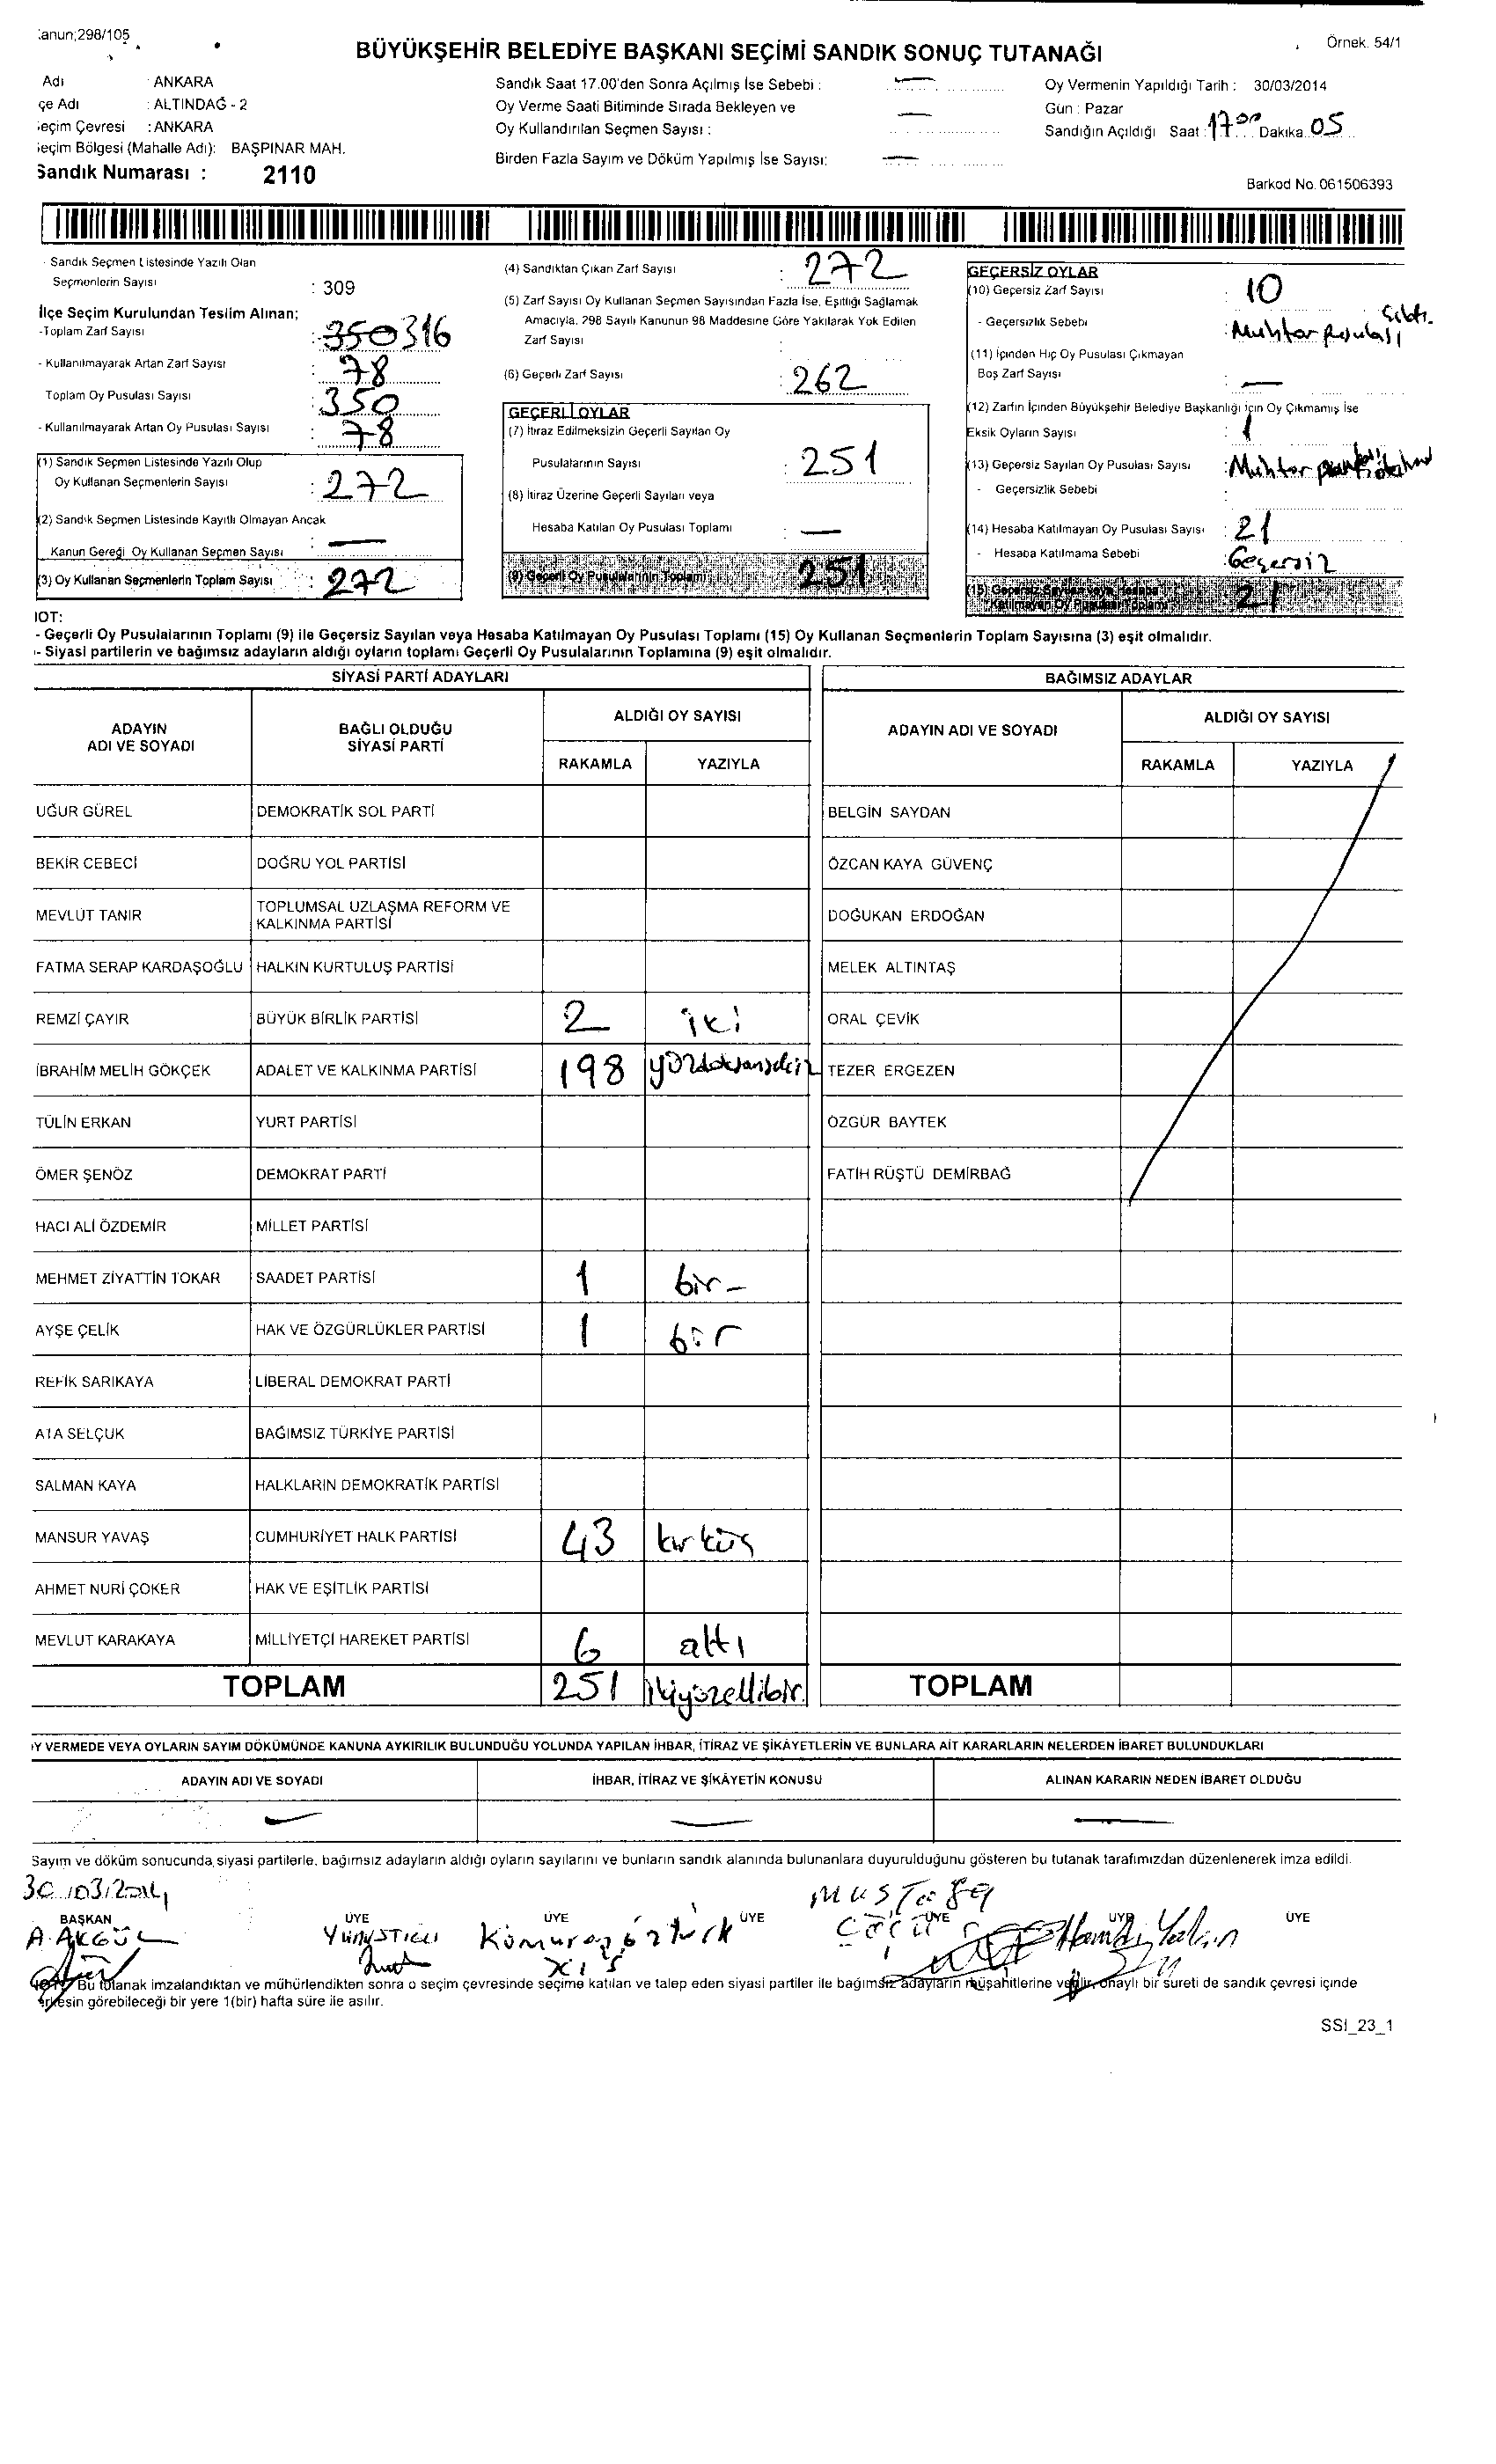 Kanun;298/105
BÜYÜKŞEHİR BELEDİYE BAŞKANI SEÇİMİ SANDIK SONUÇ TUTANAĞI
Örnek. 54/1
Adı : ANKARA
çe Adı : ALTINDAĞ - 2
eçim Çevresi : ANKARA
eçim Bölgesi (Mahalle Adı): BAŞPINAR MAH.
Sandık Numarası : 2110
Sandık Saat 17.00'den Sonra Açılmış İse Sebebi : —
Oy Verme Saati Bitiminde Sırada Bekleyen ve
Oy Kullandırılan Seçmen Sayısı : —
Birden Fazla Sayım ve Döküm Yapılmış İse Sayısı: —
Oy Vermenin Yapıldığı Tarih : 30/03/2014
Gün : Pazar
Sandığın Açıldığı Saat : 17:00 Dakika 05
Barkod No. 061506393
- Sandık Seçmen Listesinde Yazılı Olan
Seçmenlerin Sayısı : 309
İlçe Seçim Kurulundan Teslim Alınan;
-Toplam Zarf Sayısı : 350 316
- Kullanılmayarak Artan Zarf Sayısı : 78
Toplam Oy Pusulası Sayısı : 350
- Kullanılmayarak Artan Oy Pusulası Sayısı : 78
(1) Sandık Seçmen Listesinde Yazılı Olup
Oy Kullanan Seçmenlerin Sayısı : 272
(2) Sandık Seçmen Listesinde Kayıtlı Olmayan Ancak
Kanun Gereği Oy Kullanan Seçmen Sayısı : —
(3) Oy Kullanan Seçmenlerin Toplam Sayısı : 272
(4) Sandıktan Çıkan Zarf Sayısı : 272
(5) Zarf Sayısı Oy Kullanan Seçmen Sayısından Fazla İse, Eşitliği Sağlamak
Amacıyla, 298 Sayılı Kanunun 98 Maddesine Göre Yakılarak Yok Edilen
Zarf Sayısı :
(6) Geçerli Zarf Sayısı : 262
GEÇERLİ OYLAR
(7) İtiraz Edilmeksizin Geçerli Sayılan Oy
Pusulalarının Sayısı : 251
(8) İtiraz Üzerine Geçerli Sayılan veya
Hesaba Katılan Oy Pusulası Toplamı : —
(9) Geçerli Oy Pusulalarının Toplamı : 251
GEÇERSİZ OYLAR
(10) Geçersiz Zarf Sayısı : 10
- Geçersizlik Sebebi : Muhtar Pusulası
(11) İçinden Hiç Oy Pusulası Çıkmayan
Boş Zarf Sayısı : —
(12) Zarfın İçinden Büyükşehir Belediye Başkanlığı için Oy Çıkmamış İse
Eksik Oyların Sayısı : 1
(13) Geçersiz Sayılan Oy Pusulası Sayısı : Muhtar
- Geçersizlik Sebebi :
(14) Hesaba Katılmayan Oy Pusulası Sayısı : 21
- Hesaba Katılmama Sebebi Geçersiz
(15) Geçersiz Sayılan veya Hesaba
Katılmayan Oy Pusulası Toplamı 21
NOT:
- Geçerli Oy Pusulalarının Toplamı (9) ile Geçersiz Sayılan veya Hesaba Katılmayan Oy Pusulası Toplamı (15) Oy Kullanan Seçmenlerin Toplam Sayısına (3) eşit olmalıdır.
- Siyasi partilerin ve bağımsız adayların aldığı oyların toplamı Geçerli Oy Pusulalarının Toplamına (9) eşit olmalıdır.
SİYASİ PARTİ ADAYLARI BAĞIMSIZ ADAYLAR
ADAYIN ADI VE SOYADI BAĞLI OLDUĞU SİYASİ PARTİ ALDIĞI OY SAYISI ADAYIN ADI VE SOYADI ALDIĞI OY SAYISI
RAKAMLA YAZIYLA RAKAMLA YAZIYLA
UĞUR GÜREL DEMOKRATİK SOL PARTİ BELGİN SAYDAN
BEKİR CEBECİ DOĞRU YOL PARTİSİ ÖZCAN KAYA GÜVENÇ
MEVLÜT TANIR TOPLUMSAL UZLAŞMA REFORM VE KALKINMA PARTİSİ DOĞUKAN ERDOĞAN
FATMA SERAP KARDAŞOĞLU HALKIN KURTULUŞ PARTİSİ MELEK ALTINTAŞ
REMZİ ÇAYIR BÜYÜK BİRLİK PARTİSİ 2 iki ORAL ÇEVİK
İBRAHİM MELİH GÖKÇEK ADALET VE KALKINMA PARTİSİ 198 yüzdoksansekiz TEZER ERGEZEN
TÜLİN ERKAN YURT PARTİSİ ÖZGÜR BAYTEK
ÖMER ŞENÖZ DEMOKRAT PARTİ FATİH RÜŞTÜ DEMİRBAĞ
HACI ALİ ÖZDEMİR MİLLET PARTİSİ
MEHMET ZİYATTİN TOKAR SAADET PARTİSİ 1 bir -
AYŞE ÇELİK HAK VE ÖZGÜRLÜKLER PARTİSİ 1 bir
REFİK SARIKAYA LİBERAL DEMOKRAT PARTİ
ATA SELÇUK BAĞIMSIZ TÜRKİYE PARTİSİ
SALMAN KAYA HALKLARIN DEMOKRATİK PARTİSİ
MANSUR YAVAŞ CUMHURİYET HALK PARTİSİ 43 kırküç
AHMET NURİ ÇOKER HAK VE EŞİTLİK PARTİSİ
MEVLUT KARAKAYA MİLLİYETÇİ HAREKET PARTİSİ 6 altı
TOPLAM 251 ikiyüzellibir. TOPLAM
Y VERMEDE VEYA OYLARIN SAYIM DÖKÜMÜNDE KANUNA AYKIRILIK BULUNDUĞU YOLUNDA YAPILAN İHBAR, İTİRAZ VE ŞİKÂYETLERİN VE BUNLARA AİT KARARLARIN NELERDEN İBARET BULUNDUKLARI
ADAYIN ADI VE SOYADI İHBAR, İTİRAZ VE ŞİKÂYETİN KONUSU ALINAN KARARIN NEDEN İBARET OLDUĞU
— — —
Sayım ve döküm sonucunda siyasi partilerle, bağımsız adayların aldığı oyların sayılarını ve bunların sandık alanında bulunanlara duyurulduğunu gösteren bu tutanak tarafımızdan düzenlenerek imza edildi.
30/03/2014 MUSTAFA
BAŞKAN ÜYE ÜYE ÜYE ÜYE ÜYE ÜYE
A. AKGÜL öztürk Hamdi Yalçın
Bu tutanak imzalandıktan ve mühürlendikten sonra o seçim çevresinde seçime katılan ve talep eden siyasi partiler ile bağımsız adayların müşahitlerine verilir, onaylı bir sureti de sandık çevresi içinde
erkesin görebileceği bir yere 1(bir) hafta süre ile asılır.
SSI_23_1